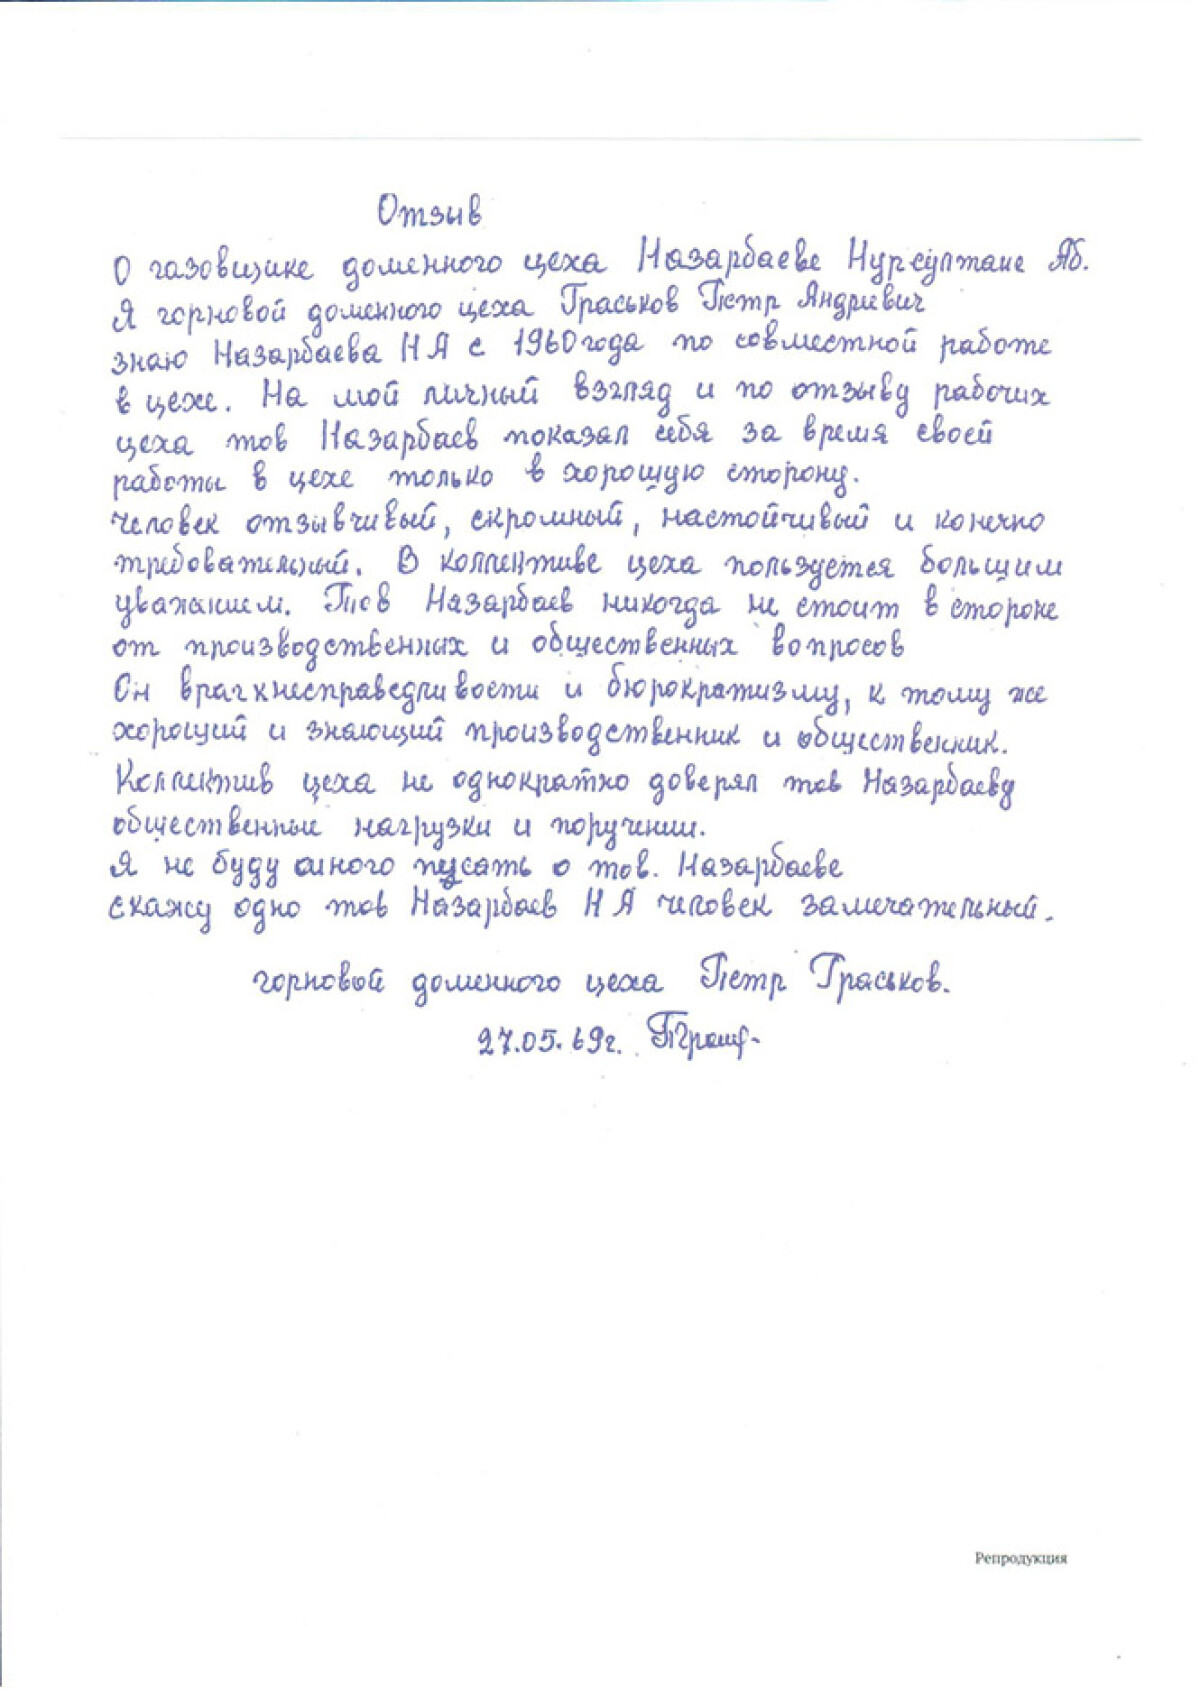 Отзыв
О газовщике доменного цеха Назарбаеве Нурсултане Аб.
Я горновой доменного цеха Граськов Петр Яндриевич
знаю Назарбаева Н А с 1960 года по совместной работе
в цехе. На мой личный взгляд и по отзыву рабочих
цеха тов Назарбаев показал себя за время своей
работы в цехе только в хорошую сторону.
Человек отзывчивый, скромный, настойчивый и конечно
требовательный. В коллективе цеха пользуется большим
уважанием. Тов Назарбаев никогда не стоит в стороне
от производственных и общественных вопросов
Он враг к несправедливости и бюрократизму, к тому же
хороший и знающий производственник и общественник.
Коллектив цеха не однократно доверял тов Назарбаеву
общественные нагрузки и поручении.
Я не буду много писать о тов. Назарбаеве
скажу одно тов Назарбаев Н А человек замечательный.
горновый доменного цеха Петр Граськов.
27.05.69г.
Репродукция